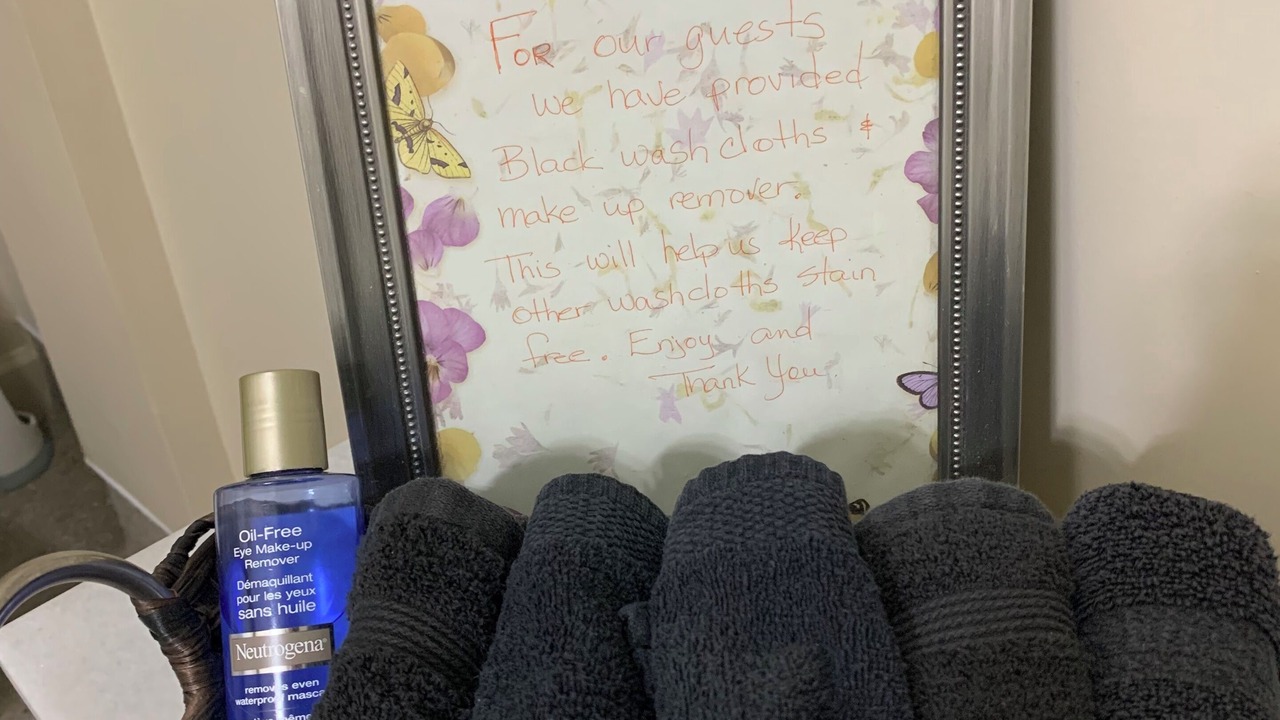 For our guests
we have provided
Black wash cloths &
make up remover.
This will help us keep
other washcloths stain
free. Enjoy and
Thank You
Oil-Free
Eye Make-up
Remover
Démaquillant
pour les yeux
sans huile
Neutrogena®
removes even
waterproof masca